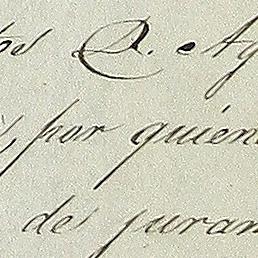 tos D. Ag
, por quien
de juram